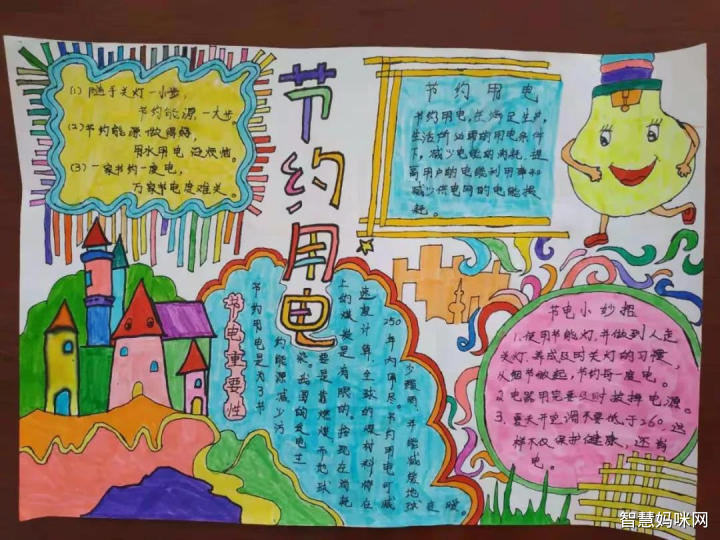 (1) 随手关灯一小步,
节约能源一大步。
(2) 节约能源做得
用水用电没烦恼。
(3) 一家节约一度电,
万家节电度难关。
节约用电
节约用电
节约用电,在满足生产,
生活所必需的用电条件
下,减少电能的消耗,提
高用户的电能利用率和
减少供电网的电能损
耗。
节电重要性
节约用电是为了节
约能源减少污
我国的发电主
要是靠燃煤,而地球
上的煤炭是有限的,按现在消耗
速度计算,全球的煤材料将在
250年内用尽。节约用电可减
少 并能减缓地球变暖。
节电小妙招
1.使用节能灯,并做到人走
关灯,养成及时关灯的习惯,
从细节做起,节约每一度电。
2.电器用完要及时拔掉电源。
3.夏天开空调不要低于26°,这
样不仅保护健康,还省
电。
智慧妈咪网